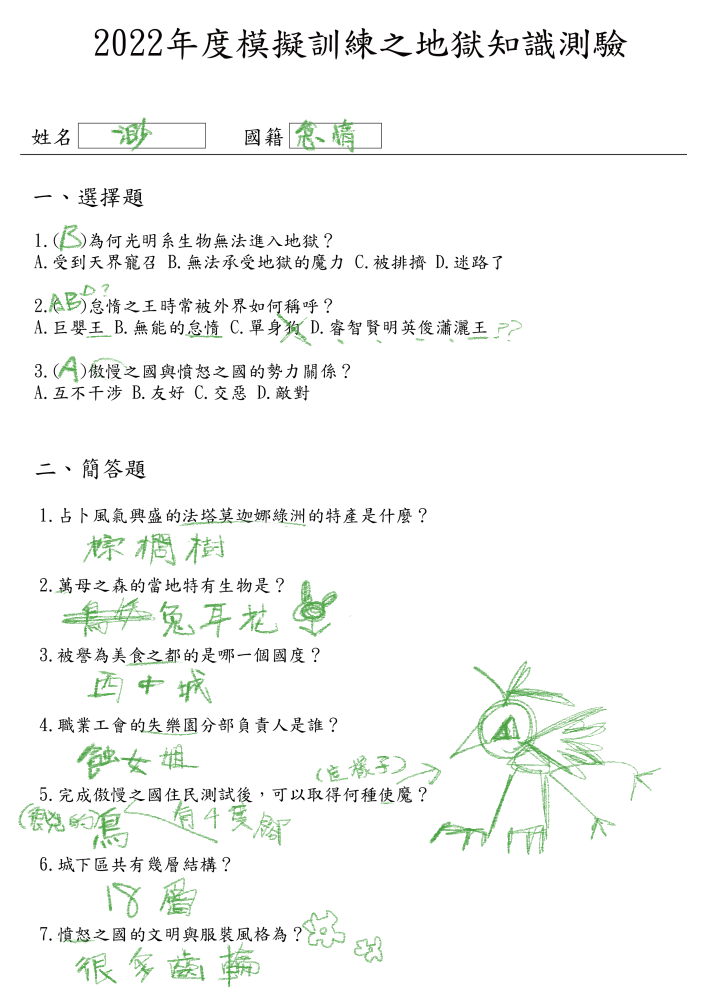 2022年度模擬訓練之地獄知識測驗
姓名 渺 國籍 怠惰
一、選擇題
1.(B)為何光明系生物無法進入地獄？
A.受到天界寵召 B.無法承受地獄的魔力 C.被排擠 D.迷路了
2.(ABD?)怠惰之王時常被外界如何稱呼？
A.巨嬰王 B.無能的怠惰 C.單身狗 D.睿智賢明英俊瀟灑王??
3.(A)傲慢之國與憤怒之國的勢力關係？
A.互不干涉 B.友好 C.交惡 D.敵對
二、簡答題
1.占卜風氣興盛的法塔莫迦娜綠洲的特產是什麼？
棕櫚樹
2.萬母之森的當地特有生物是？
兔耳花
3.被譽為美食之都的是哪一個國度？
西中城
4.職業工會的失樂園分部負責人是誰？
蝕女姐
(這樣子)
5.完成傲慢之國住民測試後，可以取得何種使魔？
(很兇的)鳥 有4隻腳
6.城下區共有幾層結構？
18層
7.憤怒之國的文明與服裝風格為？
很多齒輪